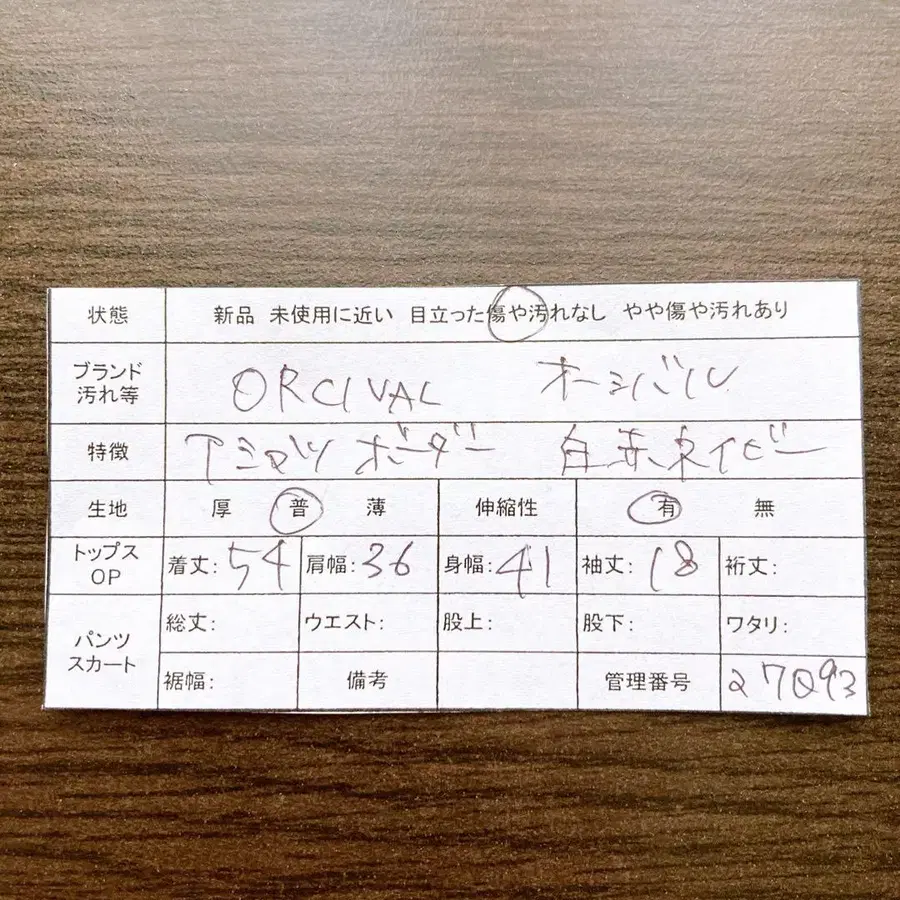 状態 新品 未使用に近い 目立った傷や汚れなし やや傷や汚れあり
ブランド
汚れ等 ORCIVAL オーシバル
特徴 Tシャツ ボーダー 白赤ネイビー
生地 厚 普 薄 伸縮性 有 無
トップス
OP 着丈:54 肩幅:36 身幅:41 袖丈:18 裄丈:
パンツ
スカート 総丈: ウエスト: 股上: 股下: ワタリ:
裾幅: 備考 管理番号 27093